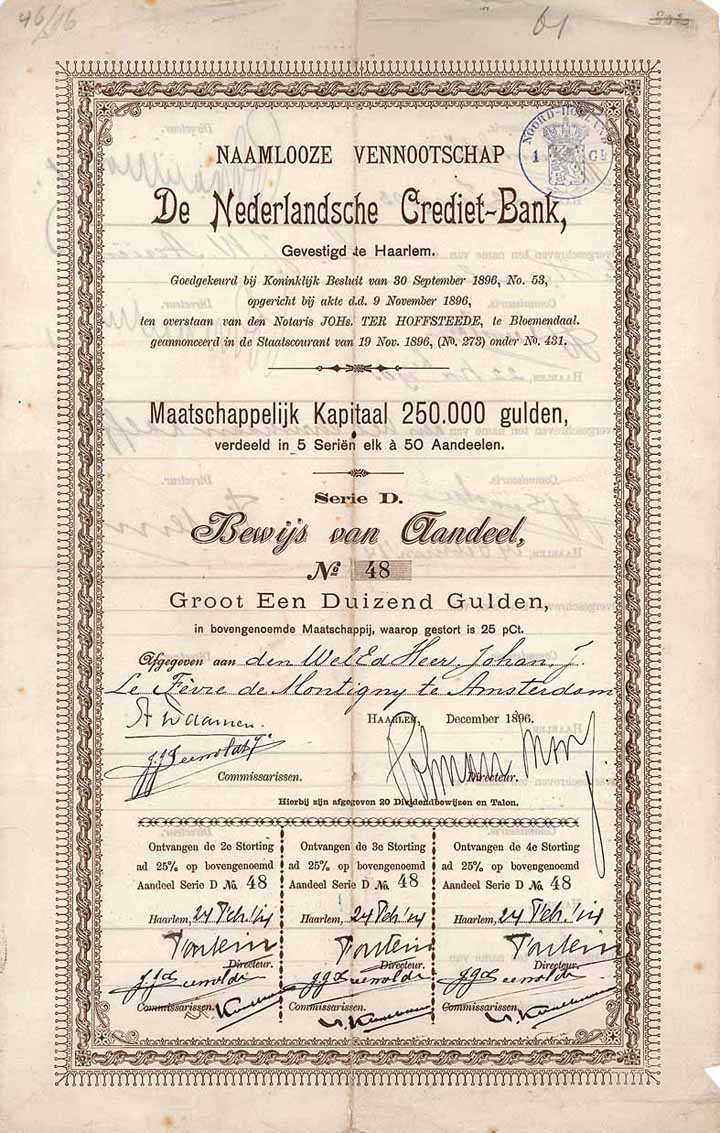 46/16
61
NOORD-HOLLAND
1 Gl
NAAMLOOZE VENNOOTSCHAP
De Nederlandsche Crediet-Bank,
Gevestigd te Haarlem.
Goedgekeurd bij Koninklijk Besluit van 30 September 1896, No. 53,
opgericht bij akte d.d. 9 November 1896,
ten overstaan van den Notaris JOHs. TER HOFFSTEEDE, te Bloemendaal.
geannonceerd in de Staatscourant van 19 Nov. 1896, (No. 273) onder No. 431.
Maatschappelijk Kapitaal 250.000 gulden,
verdeeld in 5 Seriën elk à 50 Aandeelen.
Serie D.
Bewijs van Aandeel,
No 48
Groot Een Duizend Gulden,
in bovengenoemde Maatschappij, waarop gestort is 25 pCt.
Afgegeven aan den WelEd Heer. Johan. J.
Le Fèvre de Montigny te Amsterdam
HAARLEM, December 1896.
Commissarissen. Directeur.
Hierbij zijn afgegeven 20 Dividendbewijzen en Talon.
Ontvangen de 2e Storting
ad 25% op bovengenoemd
Aandeel Serie D No. 48
Haarlem, 24 Feb. '14
Directeur.
Commissarissen.
Ontvangen de 3e Storting
ad 25% op bovengenoemd
Aandeel Serie D No. 48
Haarlem, 24 Feb. '14
Directeur.
Commissarissen.
Ontvangen de 4e Storting
ad 25% op bovengenoemd
Aandeel Serie D No. 48
Haarlem, 24 Feb. '14
Directeur.
Commissarissen.